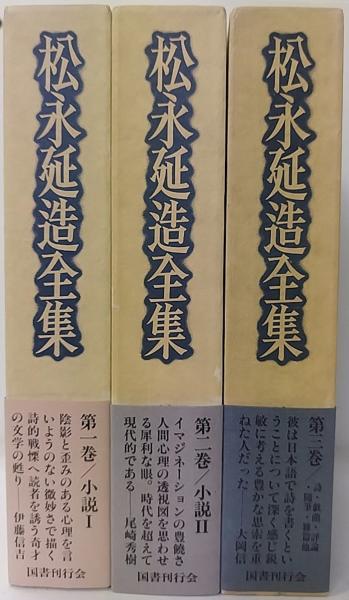 松永延造全集
第一巻/小説Ⅰ
陰影と歪みのある心理を言
いようのない微妙さで描く
詩的戦慄へ読者を誘う奇才
の文学の甦り――伊藤信吉
国書刊行会
松永延造全集
第二巻/小説Ⅱ
イマジネーションの豊饒さ
人間心理の透視図を思わせ
る犀利な眼。時代を超えて
現代的である――尾崎秀樹
国書刊行会
松永延造全集
第三巻/詩・戯曲・評論
随筆・雑篇他
彼は日本語で詩を書くとい
うことについて深く感じ鋭
敏に考える豊かな思索を重
ねた人だった――大岡信
国書刊行会